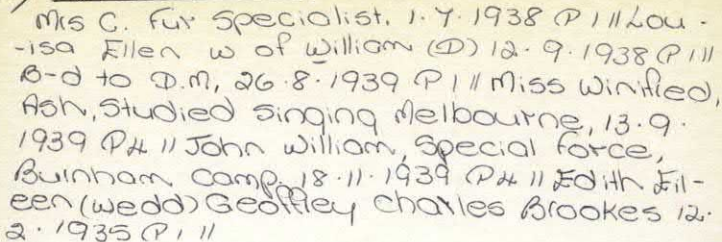 Mrs C. Fur Specialist. 1.7.1938 P1 // Lou-
-isa Ellen w of William (D) 12.9.1938 P1 //
B-d to D.M, 26.8.1939 P1 // Miss Winified,
Ash, Studied Singing Melbourne, 13.9.
1939 P4 // John William, Special Force,
Burnham Camp, 18.11.1939 P4 // Edith Eil-
een (wedd) Geoffley Charles Brookes 12.
2.1935 P1 //